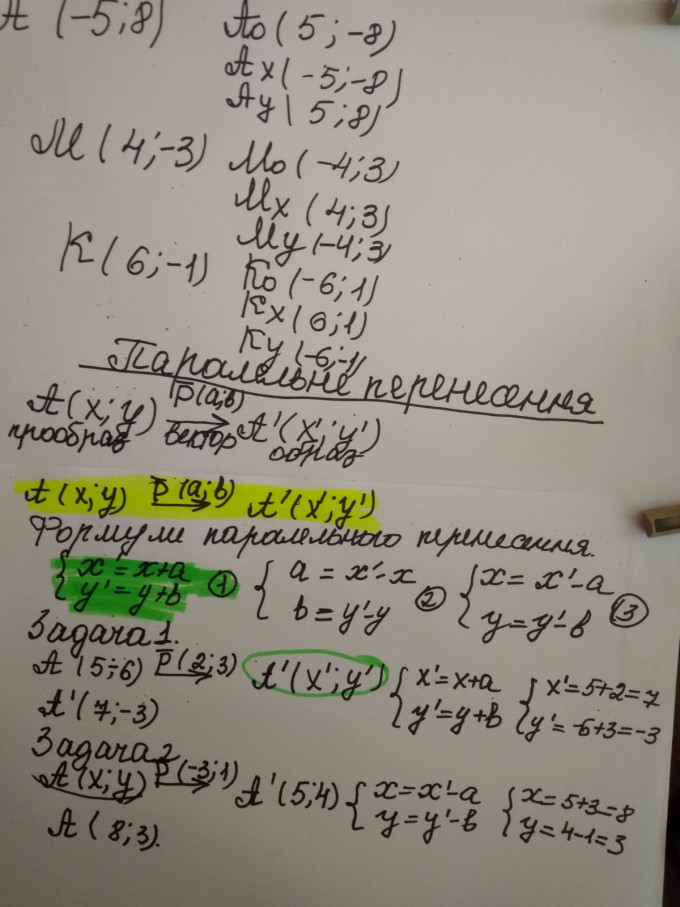 A (-5;8) Ao (5;-8)
Ax (-5;-8)
Ay (5;8)
M (4;-3) Mo (-4;3)
Mx (4;3)
My (-4;3)
K (6;-1) Ko (-6;1)
Kx (6;1)
Ky (-6;-1)
Паралельне перенесення
A(x;y) p̅(a;b) → A'(x';y')
прообраз вектор образ
A(x;y) p̅(a;b) → A'(x';y')
Формули паралельного перенесення.
{ x = x+a ① { a = x'-x ② { x = x'-a ③
y' = y+b b = y'-y y = y'-b
Задача 1.
A (5;-6) p̅(2;3) → A'(x';y') { x' = x+a { x' = 5+2 = 7
A' (7;-3) y' = y+b y' = -6+3 = -3
Задача 2
A(x;y) p̅(-3;1) → A'(5;4) { x = x'-a { x = 5+3 = 8
A (8;3). y = y'-b y = 4-1 = 3